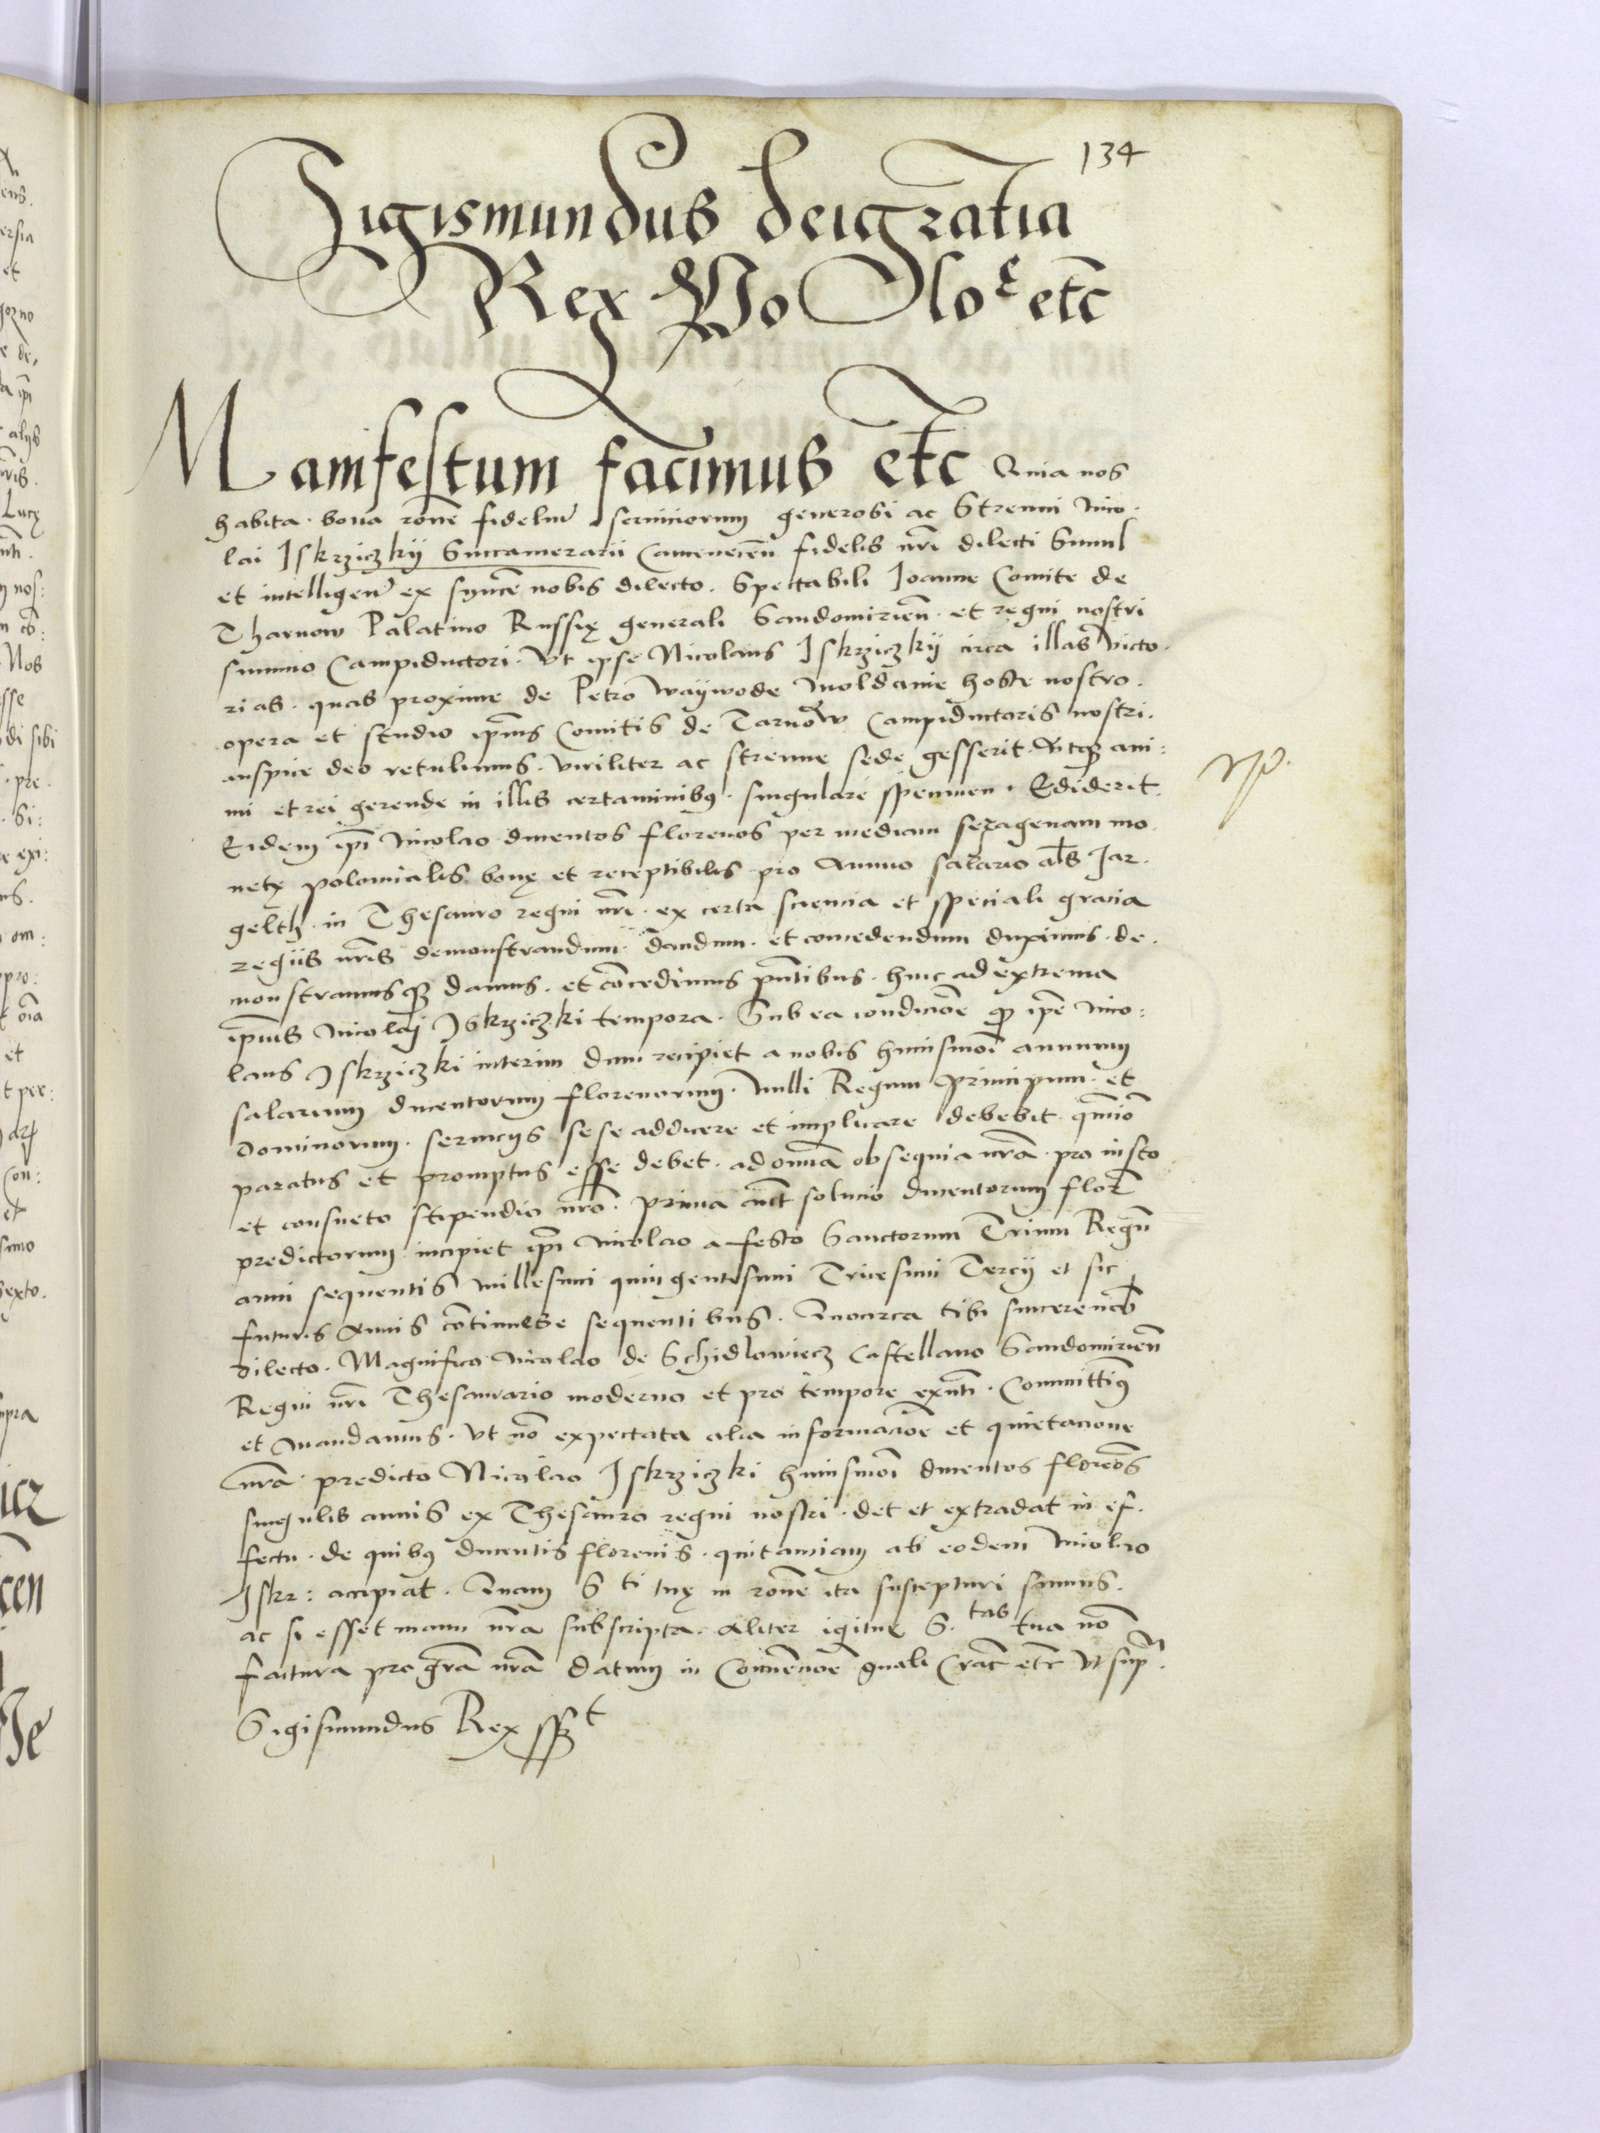 134
Sigismundus deigratia
Rex Polo etc
Manifestum facimus etc Quia nos
habita bona rone fideliu serviciorum generosi ac Strenui Nico.
lai Iskrziczkÿ Succamerarii Camenecen fidelis nri dilecti Simul
et intelligen ex synce nobis dilecto. Spectabili Ioanne Comite de
Tharnow Palatino Russię generali Sandomirien. et regni nostri
summo Campiductori. Vt ipse Nicolaus Iskrziczkÿ circa illas victo.
rias. quas proxime de Petro waÿwode Moldavie hoste nostro.
opera et studio ipius Comitis de Tarnow Campiductoris nostri.
auspice deo retulimus. viriliter ac strenue sede gesserit. Atqz ani:
mi et rei gerende in illis certaminibus. singulare specimen. Ediderit.
Eidem ipi Nicolao ducentos florenos per mediam sexagenam mo
netę polonicalis bonę et receptibilis pro Annuo salario als Jar.
gelth. in Thesauro regni nri. ex certa sciencia et speciali gracia
regiis nris demonstrandum. dandum. et concedendum duximus. de.
monstramusqz damus. et concedimus pntibus. huic ad extrema
ipius Nicolaj Iskrziczki tempora. Sub ea condicione qp ipe Nico:
laus Iskrziczki interim dum recipiet a nobis huiusmoi annuum
salarium ducentorum florenorum. nulli Regum principum. et
dominorum. serviciis sese addicere et implicare debebit. qmio
paratus et promptus esse debet. ad omnia obsequia nra. pro iusto
et consueto stipendio nro. prima aut solucio ducentorum flor
predictorum incipiet ipi Nicolao a festo Sanctorum Trium Regu
anni sequentis millesimi quingentesimi Tricesimi Tercij et sic
futuris Annis continue se sequentibus. Quocirca tibi sincere nob
dilecto. Magnifico Nicolao de Schidlowiecz Castellano Sandomirien
Regni nri Thesaurario moderno et pro tempore exnti. Committimus
et mandamus. Vt no expectata alia informacioe et quietacione
nra. predicto Nicolao Iskrziczki huiusmoi ducentos florenos
singulis annis ex Thesauro regni nostri. det et extradat in ef.
fectu. de quibus ducentis florenis. quitanciam ab eodem Nicolao
Iskr: accipiat. Quam S ti tuę in rone ita suscepturi sumus.
ac si esset manu nra subscripta. Aliter igitur S. tas tua no
factura pro gra nra datum in Convencioe gnali Crac etc Vt sup.
Sigismundus Rex sszt